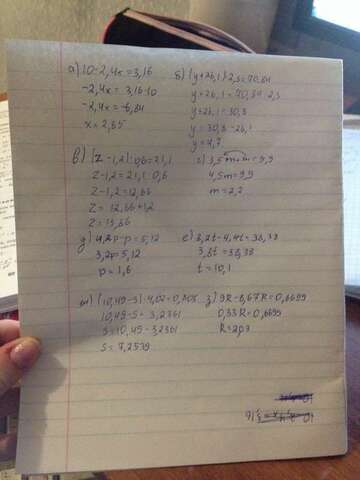 а) 10-2,4x=3,16
-2,4x=3,16-10
-2,4x=-6,84
x=2,85
б) (y+26,1)·2,3=70,84
y+26,1=70,84:2,3
y+26,1=30,8
y=30,8-26,1
y=4,7
в) (z-1,2):0,6=21,1
z-1,2=21,1·0,6
z-1,2=12,66
z=12,66+1,2
z=13,86
г) 3,5m+m=9,9
4,5m=9,9
m=2,2
д) 4,2p-p=5,12
3,2p=5,12
p=1,6
е) 8,2t-4,4t=38,38
3,8t=38,38
t=10,1
ж) (10,49-s):4,02=0,805
10,49-s=3,2361
s=10,49-3,2361
s=7,2539
з) 9R-8,67R=0,6699
0,33R=0,6699
R=2,03